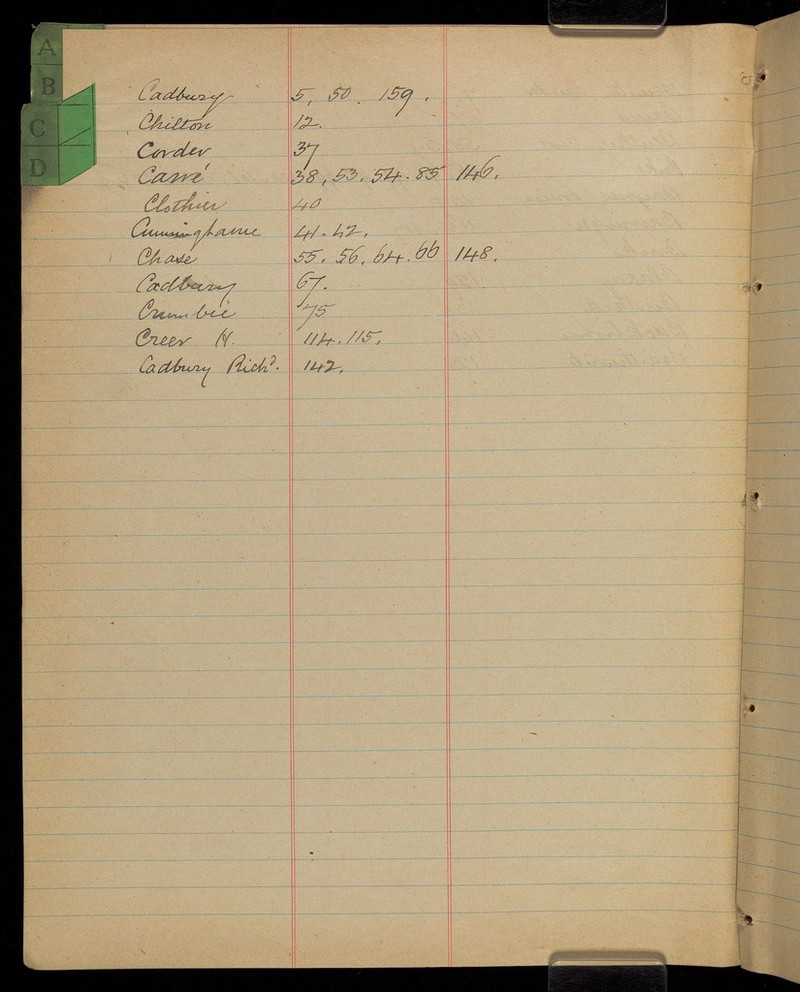 A
B
C
D
Cadbury 5, 50. 159.
Chilton 12.
Corder 37
Carré 38, 53. 54. 85 146.
Clothier 40
Cunninghame 41. 42.
Chase 55. 56. 64. 66 148.
Cadbury 67.
Crumbie 75
Creer H. 114. 115.
Cadbury Richd. 142.